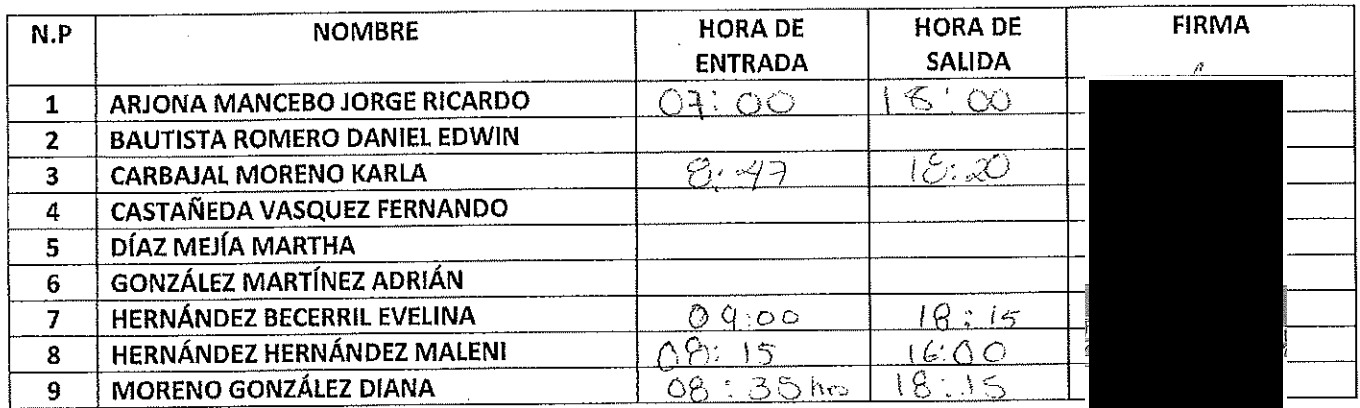 N.P NOMBRE HORA DE ENTRADA HORA DE SALIDA FIRMA
1 ARJONA MANCEBO JORGE RICARDO 07:00 18:00
2 BAUTISTA ROMERO DANIEL EDWIN
3 CARBAJAL MORENO KARLA 8:47 18:20
4 CASTAÑEDA VASQUEZ FERNANDO
5 DÍAZ MEJÍA MARTHA
6 GONZÁLEZ MARTÍNEZ ADRIÁN
7 HERNÁNDEZ BECERRIL EVELINA 09:00 18:15
8 HERNÁNDEZ HERNÁNDEZ MALENI 08:15 16:00
9 MORENO GONZÁLEZ DIANA 08:35 hrs 18:15